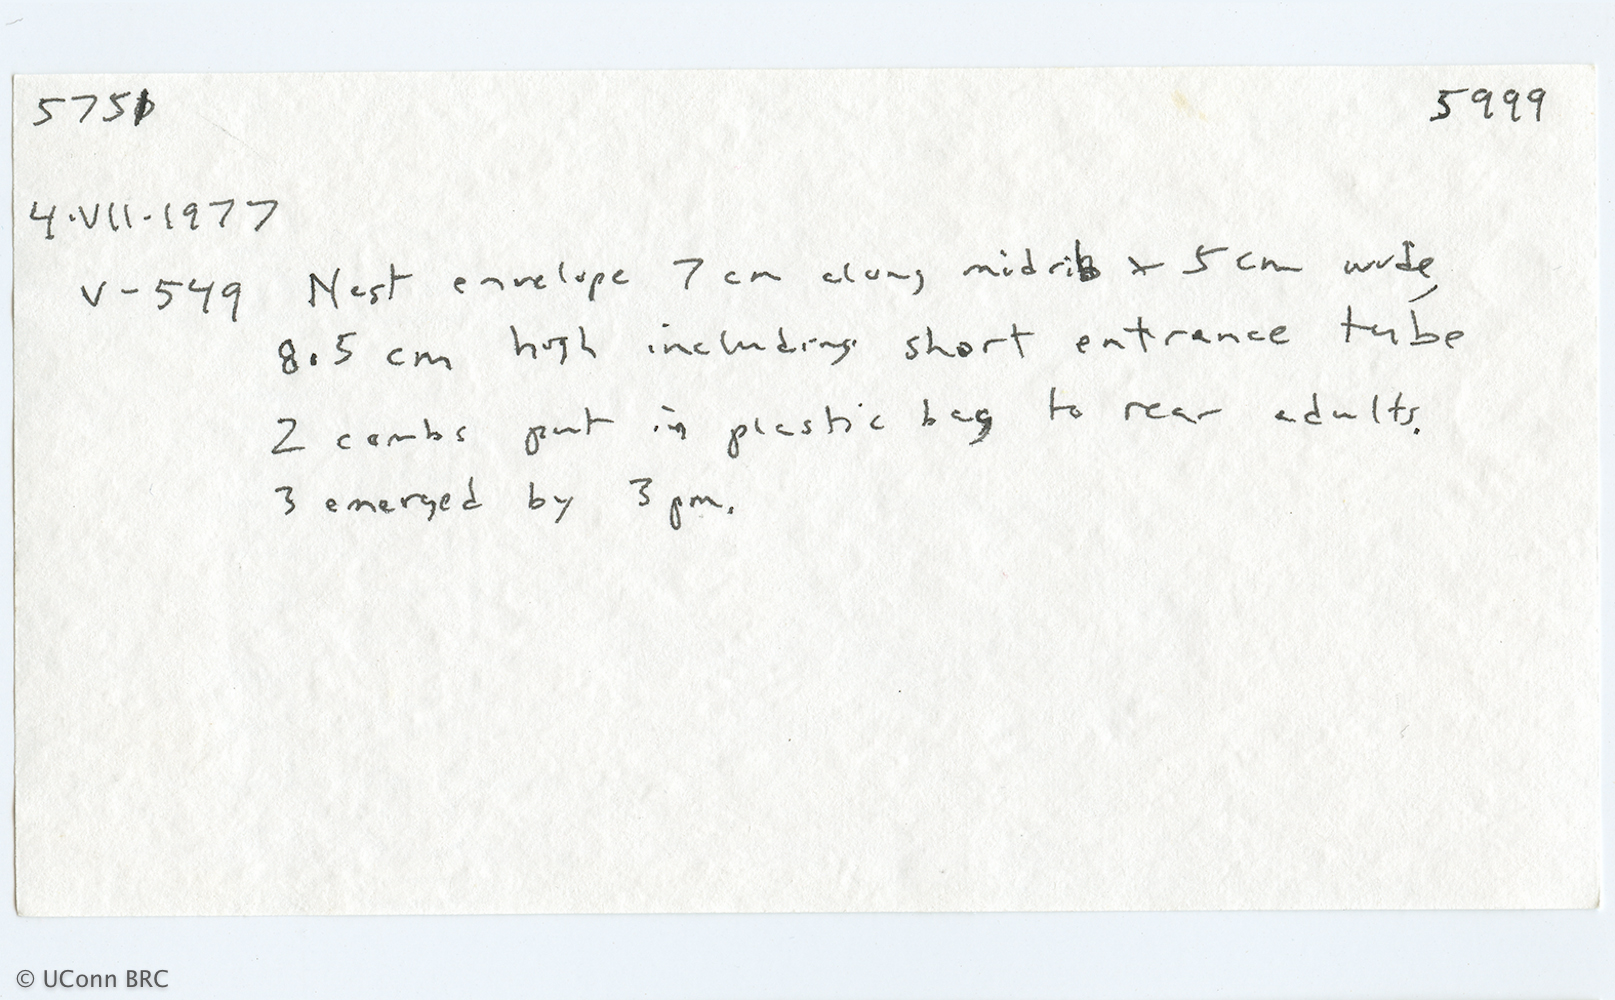 5751 5999
4·VII·1977
V-549 Nest envelope 7 cm along midrib x 5 cm wide,
8.5 cm high including short entrance tube
2 combs put in plastic bag to rear adults.
3 emerged by 3 pm.
© UConn BRC